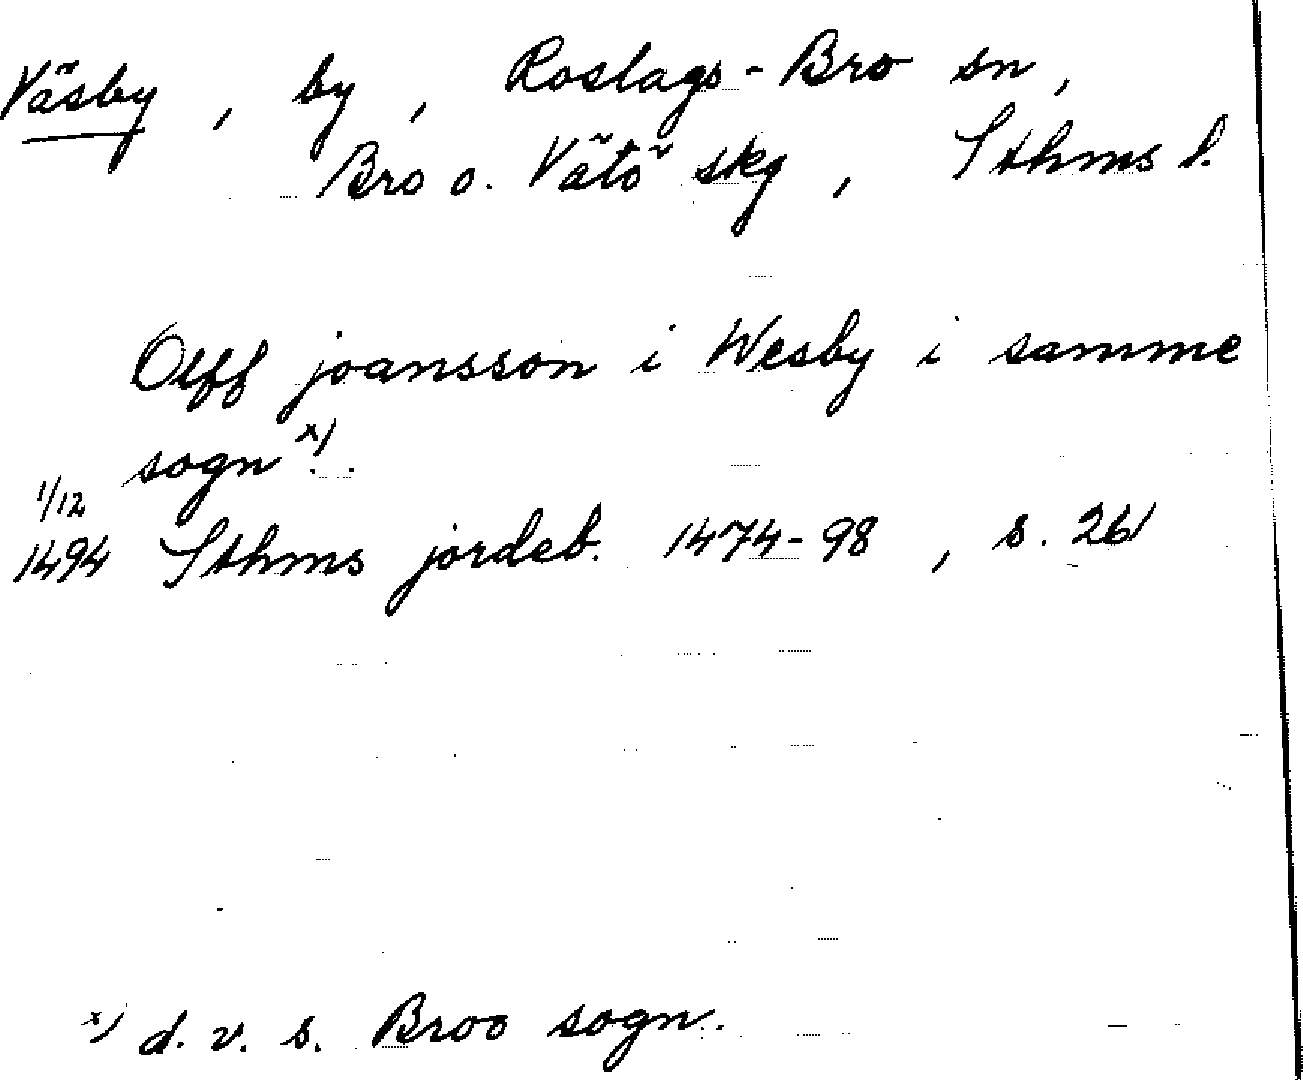 Väsby, by, Roslags-Bro sn,
Bro o. Vätö skg, Sthms l.
Olff joansson i Wesby i samme
sogn x)
1/12
1494 Sthms jordeb. 1474-98, s. 261
x) d. v. s. Broo sogn.